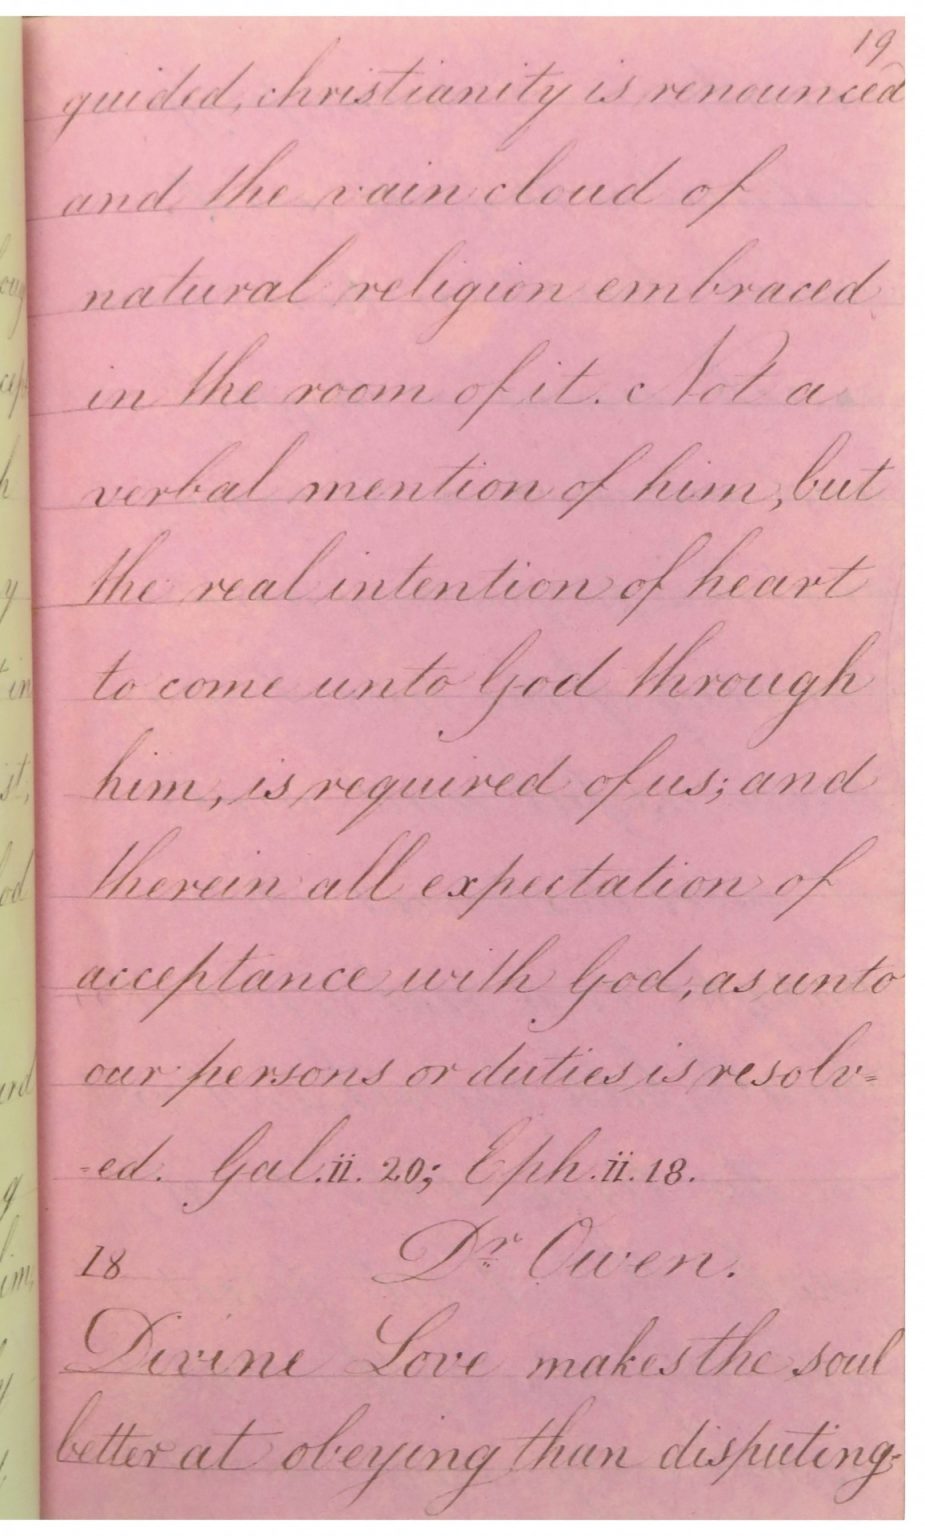 19
guided, christianity is renounced
and the vain cloud of
natural religion embraced
in the room of it. Not a
verbal mention of him, but
the real intention of heart
to come unto God through
him, is required of us; and
therein all expectation of
acceptance with God, as unto
our persons or duties is resolv=
=ed. Gal. ii. 20; Eph. ii. 18.
18 Dr Owen.
Divine Love makes the soul
better at obeying than disputing;